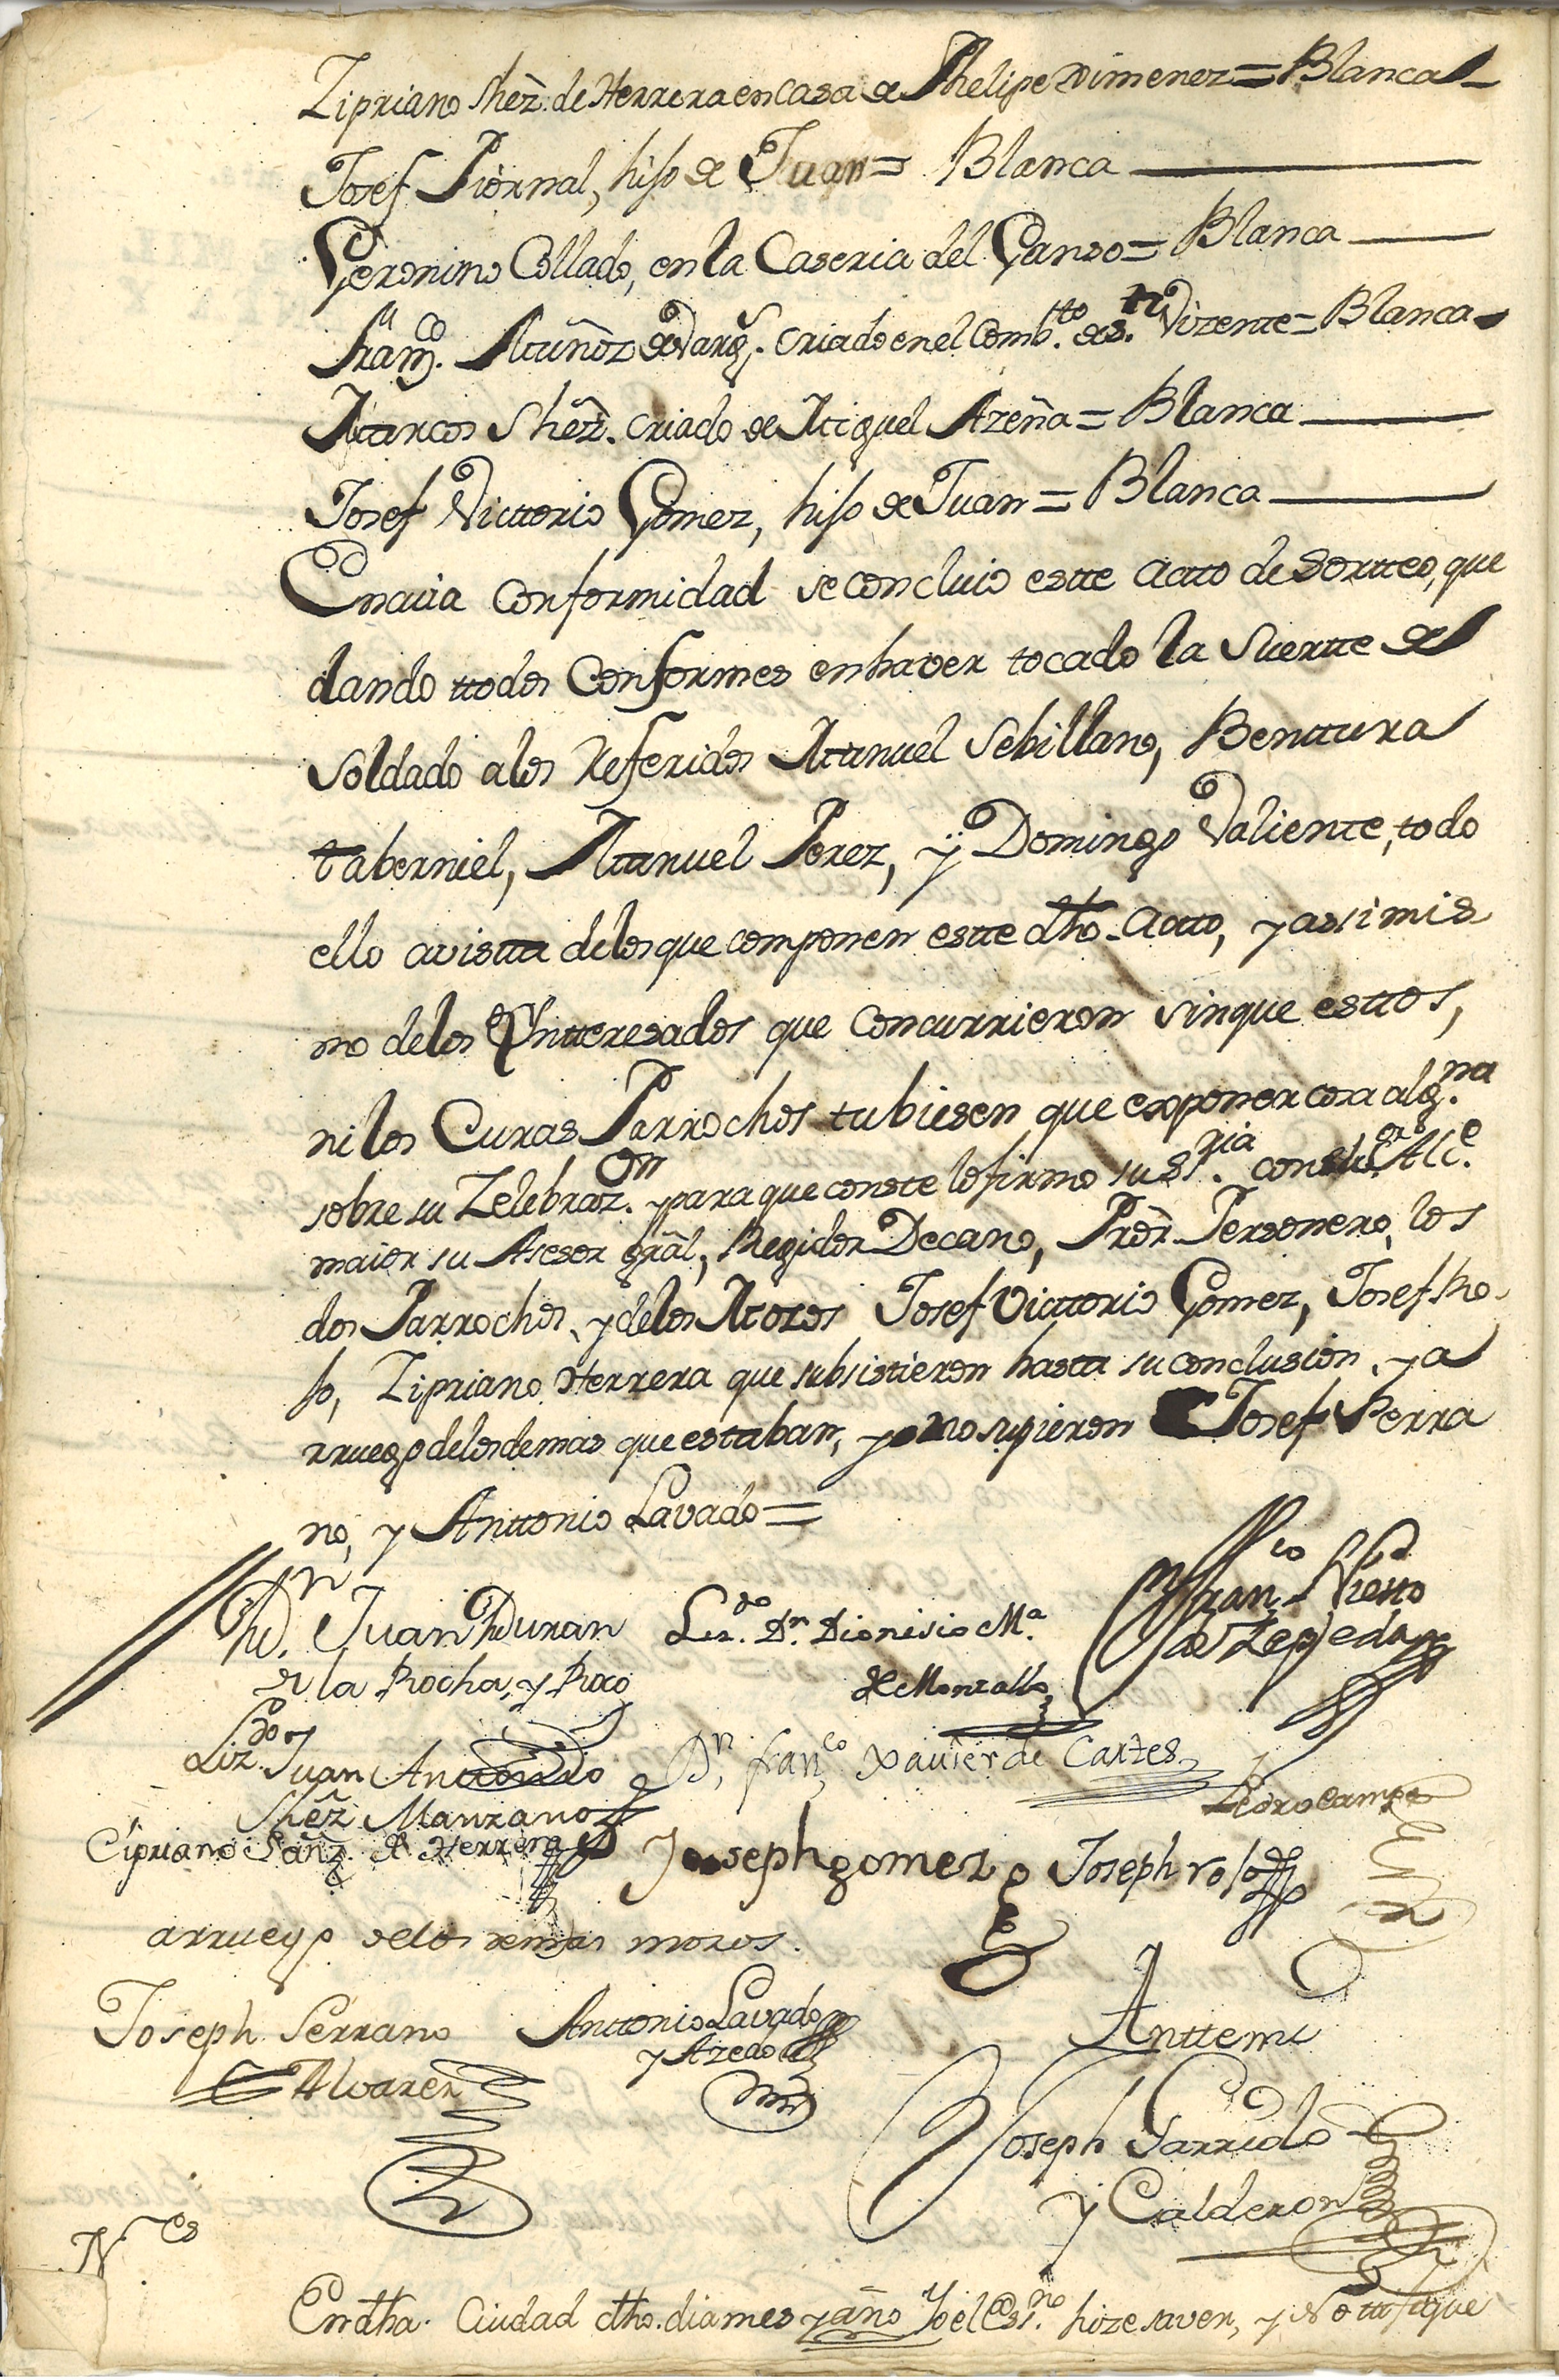 Zipriano Shez̃. de Herrera en casa de Phelipe Ximenez = Blanca
Josef Piornal, hijo de Juan = Blanca
Geronimo Collado, en la Caseria del Ganso = Blanca
Fran.co Muñoz de Varg.s criado en el Comb.to de S.n Vizente = Blanca
Marcos Shez̃. criado de Miguel Azeña = Blanca
Josef Victtorio Gomez, hijo de Juan = Blanca
En cuia Conformidad se concluio estte actto de Sortteo, que
dando ttodos Conformes en haver tocado la Suertte de
Soldado a los Referidos Manuel Sebillano, Benttura
taberniel, Manuel Perez, y Domingo Valiente, todo
ello a vistta de los que componen estte dho. Actto, y assimis
mo de los Yntteresados que Concurrieron sin que esttos,
ni los Curas Parrochos tubiesen que exponer cosa alg.na
sobre su Zelebraz.on y para que conste lo firmo su S.ria con el S.or Alc.e
maior su Asesor gral, Regidor Decano, Pror. Personero, los
dos Parrochos, y de los Mozos Josef Victtorio Gomez, Josef Ro
jo, Zipriano Herrera que subsistieron hasta su conclusion, y a
rruego de los demas que estaban, y no supieron Josef Serra
no, y Anttonio Lavado =
D.n Juan Duran
de la Rocha, y Roco
Liz.do D.n Dionisio M.a
de Monzalbo
Fran.co Nietto
de Zepeda
Liz.do Juan Anttonio
Shez̃ Manzano
D.n fran.co Xavier de Cartes
Pedro Campo
Cipriano Sanz. de Herrera
Joseph gomez
Joseph rojo
arruego de los demas mozos.
Joseph Serrano
Alvarez
Anttonio Lavado
y Azedo
Anttemi
Joseph Garrido
y Calderon
N.es
En dha. Ciudad dho. dia mes y año Yo el Ess.no hize saver, y Nottifique